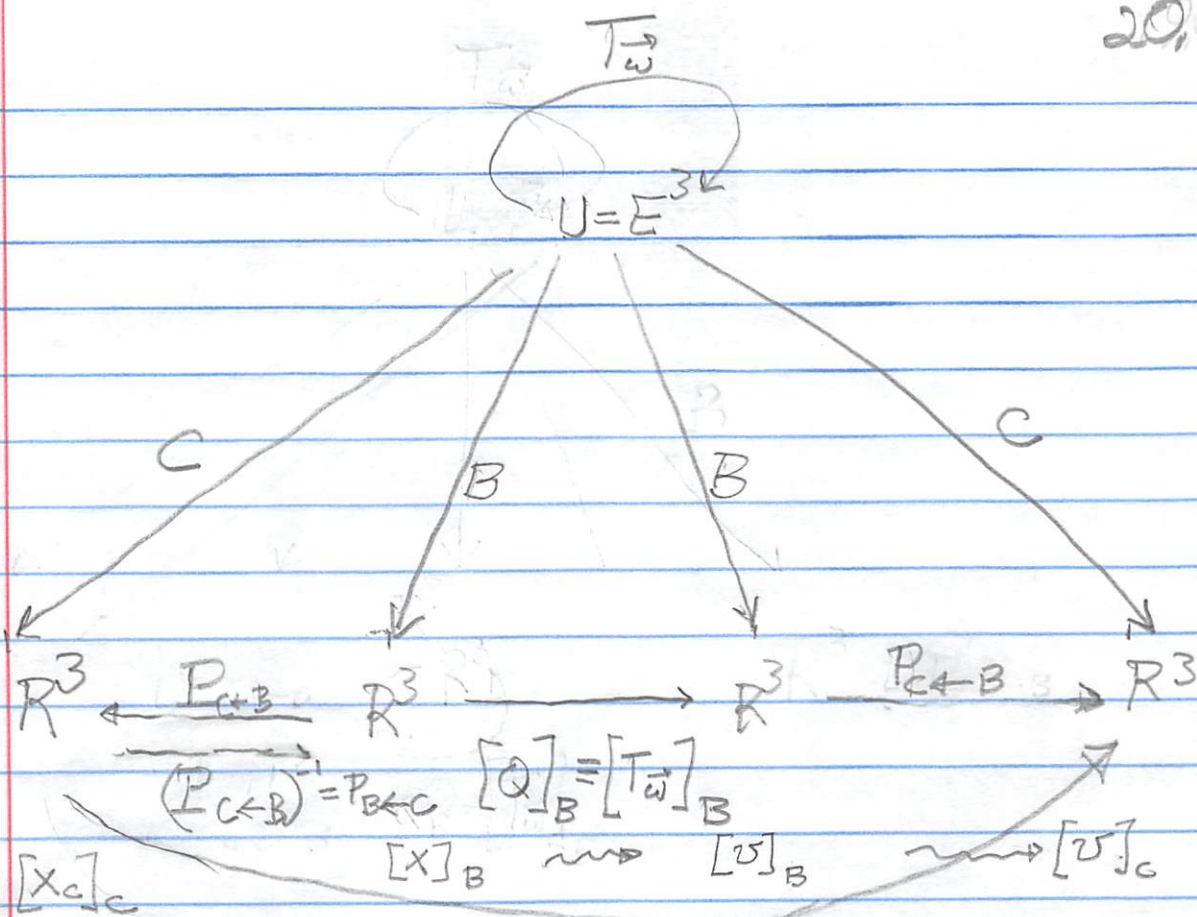 20.
T_ω⃗
U = E³
C B B C
R³ P_{C←B} R³ → R³ P_{C←B} R³
(P_{C←B})⁻¹ = P_{B←C} [Q]_B ≡ [T_ω⃗]_B
[X_C]_C [X]_B ⇝ [v]_B ⇝ [v]_C